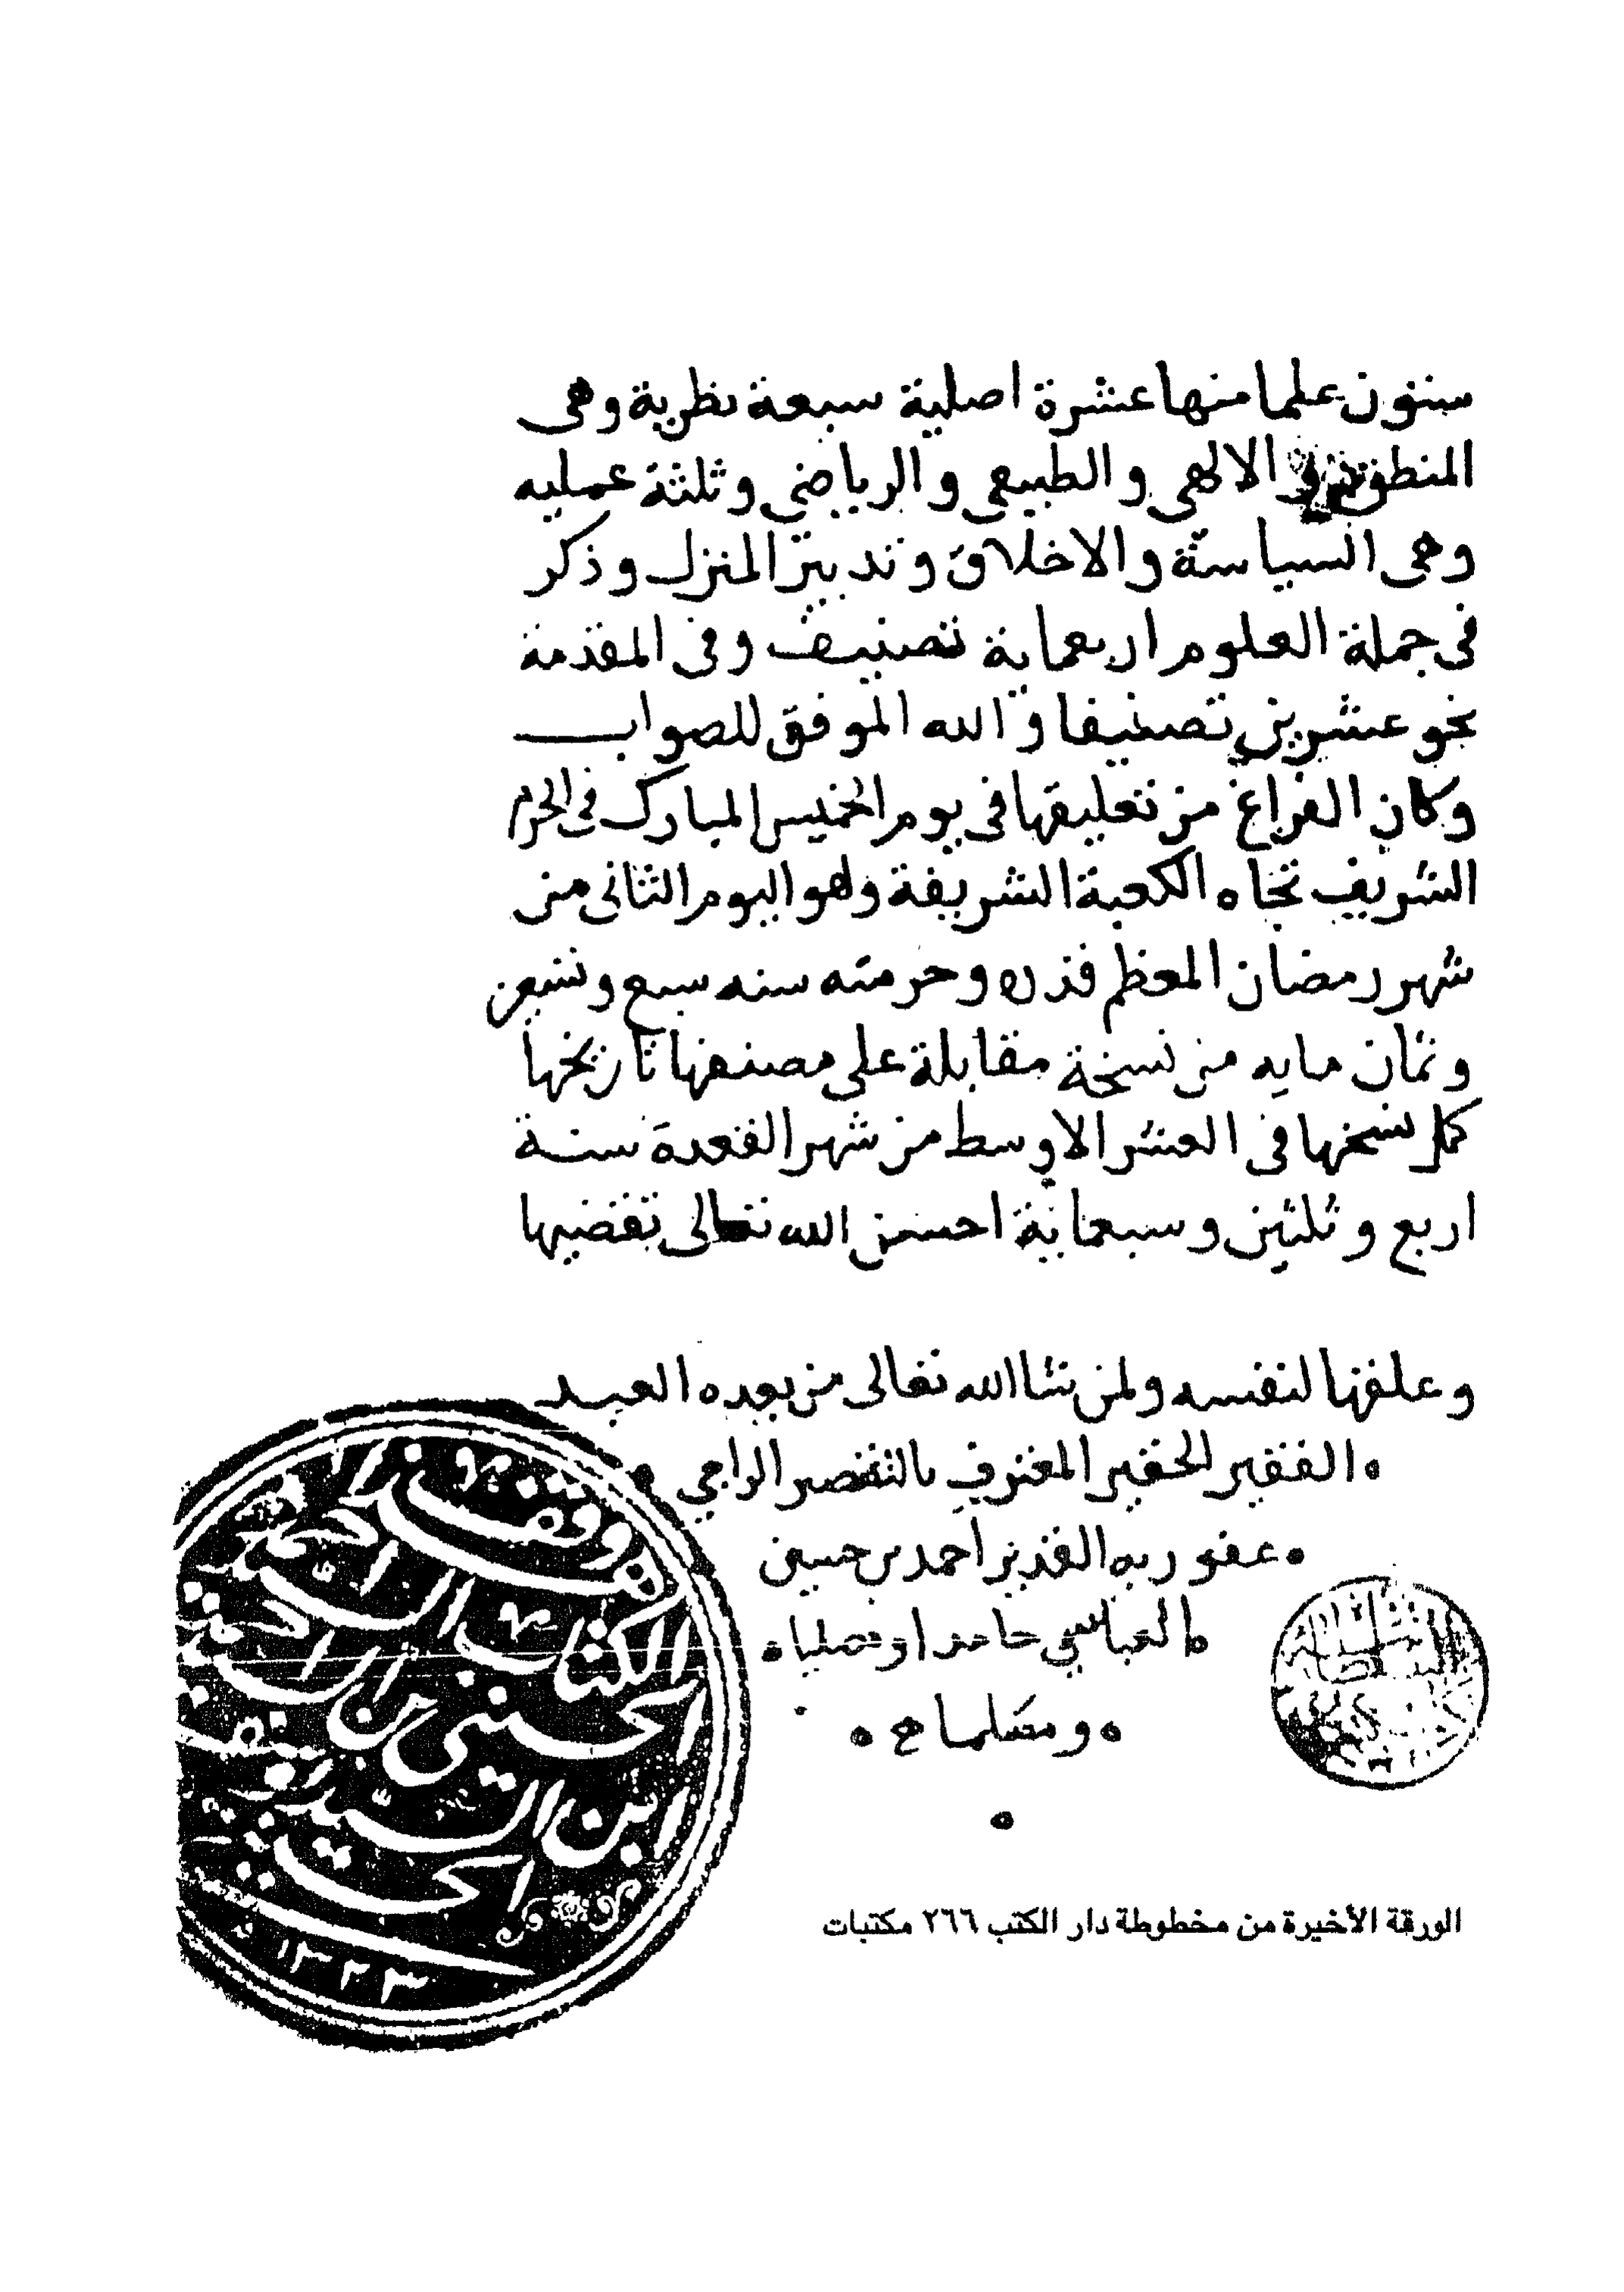 ستون علما منها عشرة اصلية سبعة نظرية وهى
المنطق والالهى والطبيعى والرياضى وثلثة عمليه
وهى السياسة والاخلاق وتدبير المنزل وذكر
فى جملة العلوم اربعماية تصنيف وفى المقدمة
نحو عشرين تصنيفا والله الموفق للصواب
وكان الفراغ من تعليقها فى يوم الخميس المبارك فى الحرم
الشريف تجاه الكعبة الشريفة وهو اليوم الثانى من
شهر رمضان المعظم قدره وحرمته سنه سبع وتسعين
وثمان مايه من نسخة مقابلة على مصنفها تاريخها
كمل نسخها فى العشر الاوسط من شهر القعدة سنة
اربع وثلثين وسبعماية احسن الله تعالى تقضيها
وعلقها لنفسه ولمن شا الله تعالى من بعده العبد
الفقير الحقير المعترف بالتقصير الراجى
عفو ربه القدير احمد بن حسين
العباسي حامدا ومصليا
ومسلما
وقف
هذا
الكتاب
الحسيني بن
ابن السيد
١٣٢٣
الورقة الأخيرة من مخطوطة دار الكتب ٢٦٦ مكتبات